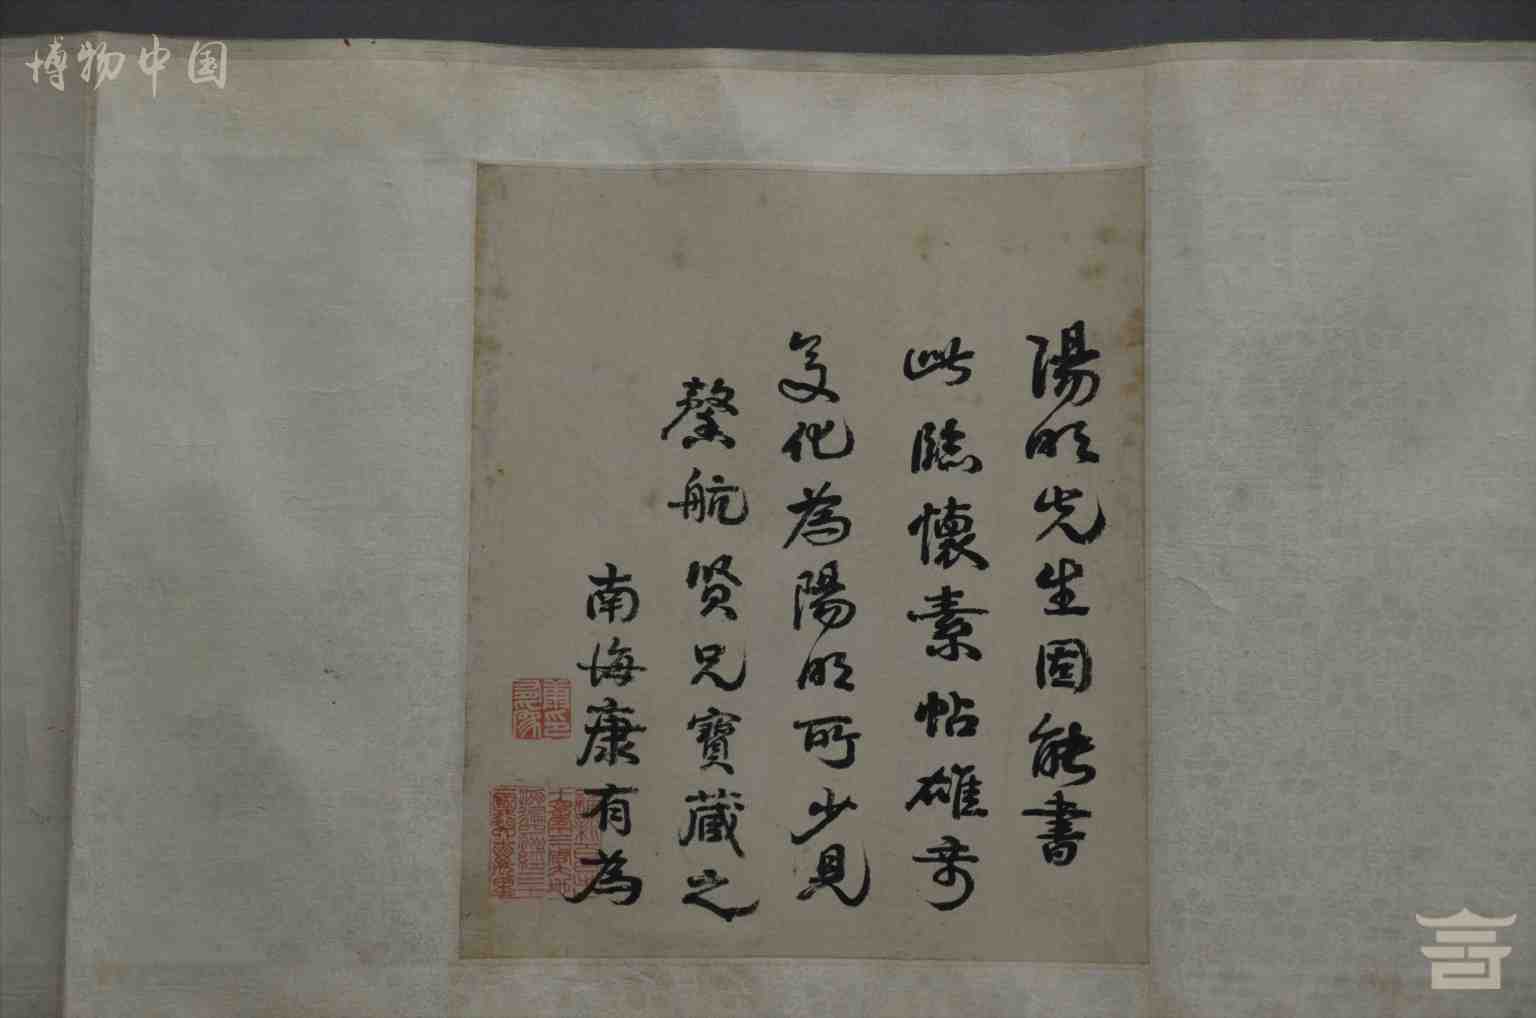 博物中国
陽明先生固能書
此臨懷素帖雄奇
變化為陽明所少見
馨航賢兄寶藏之
南海康有為